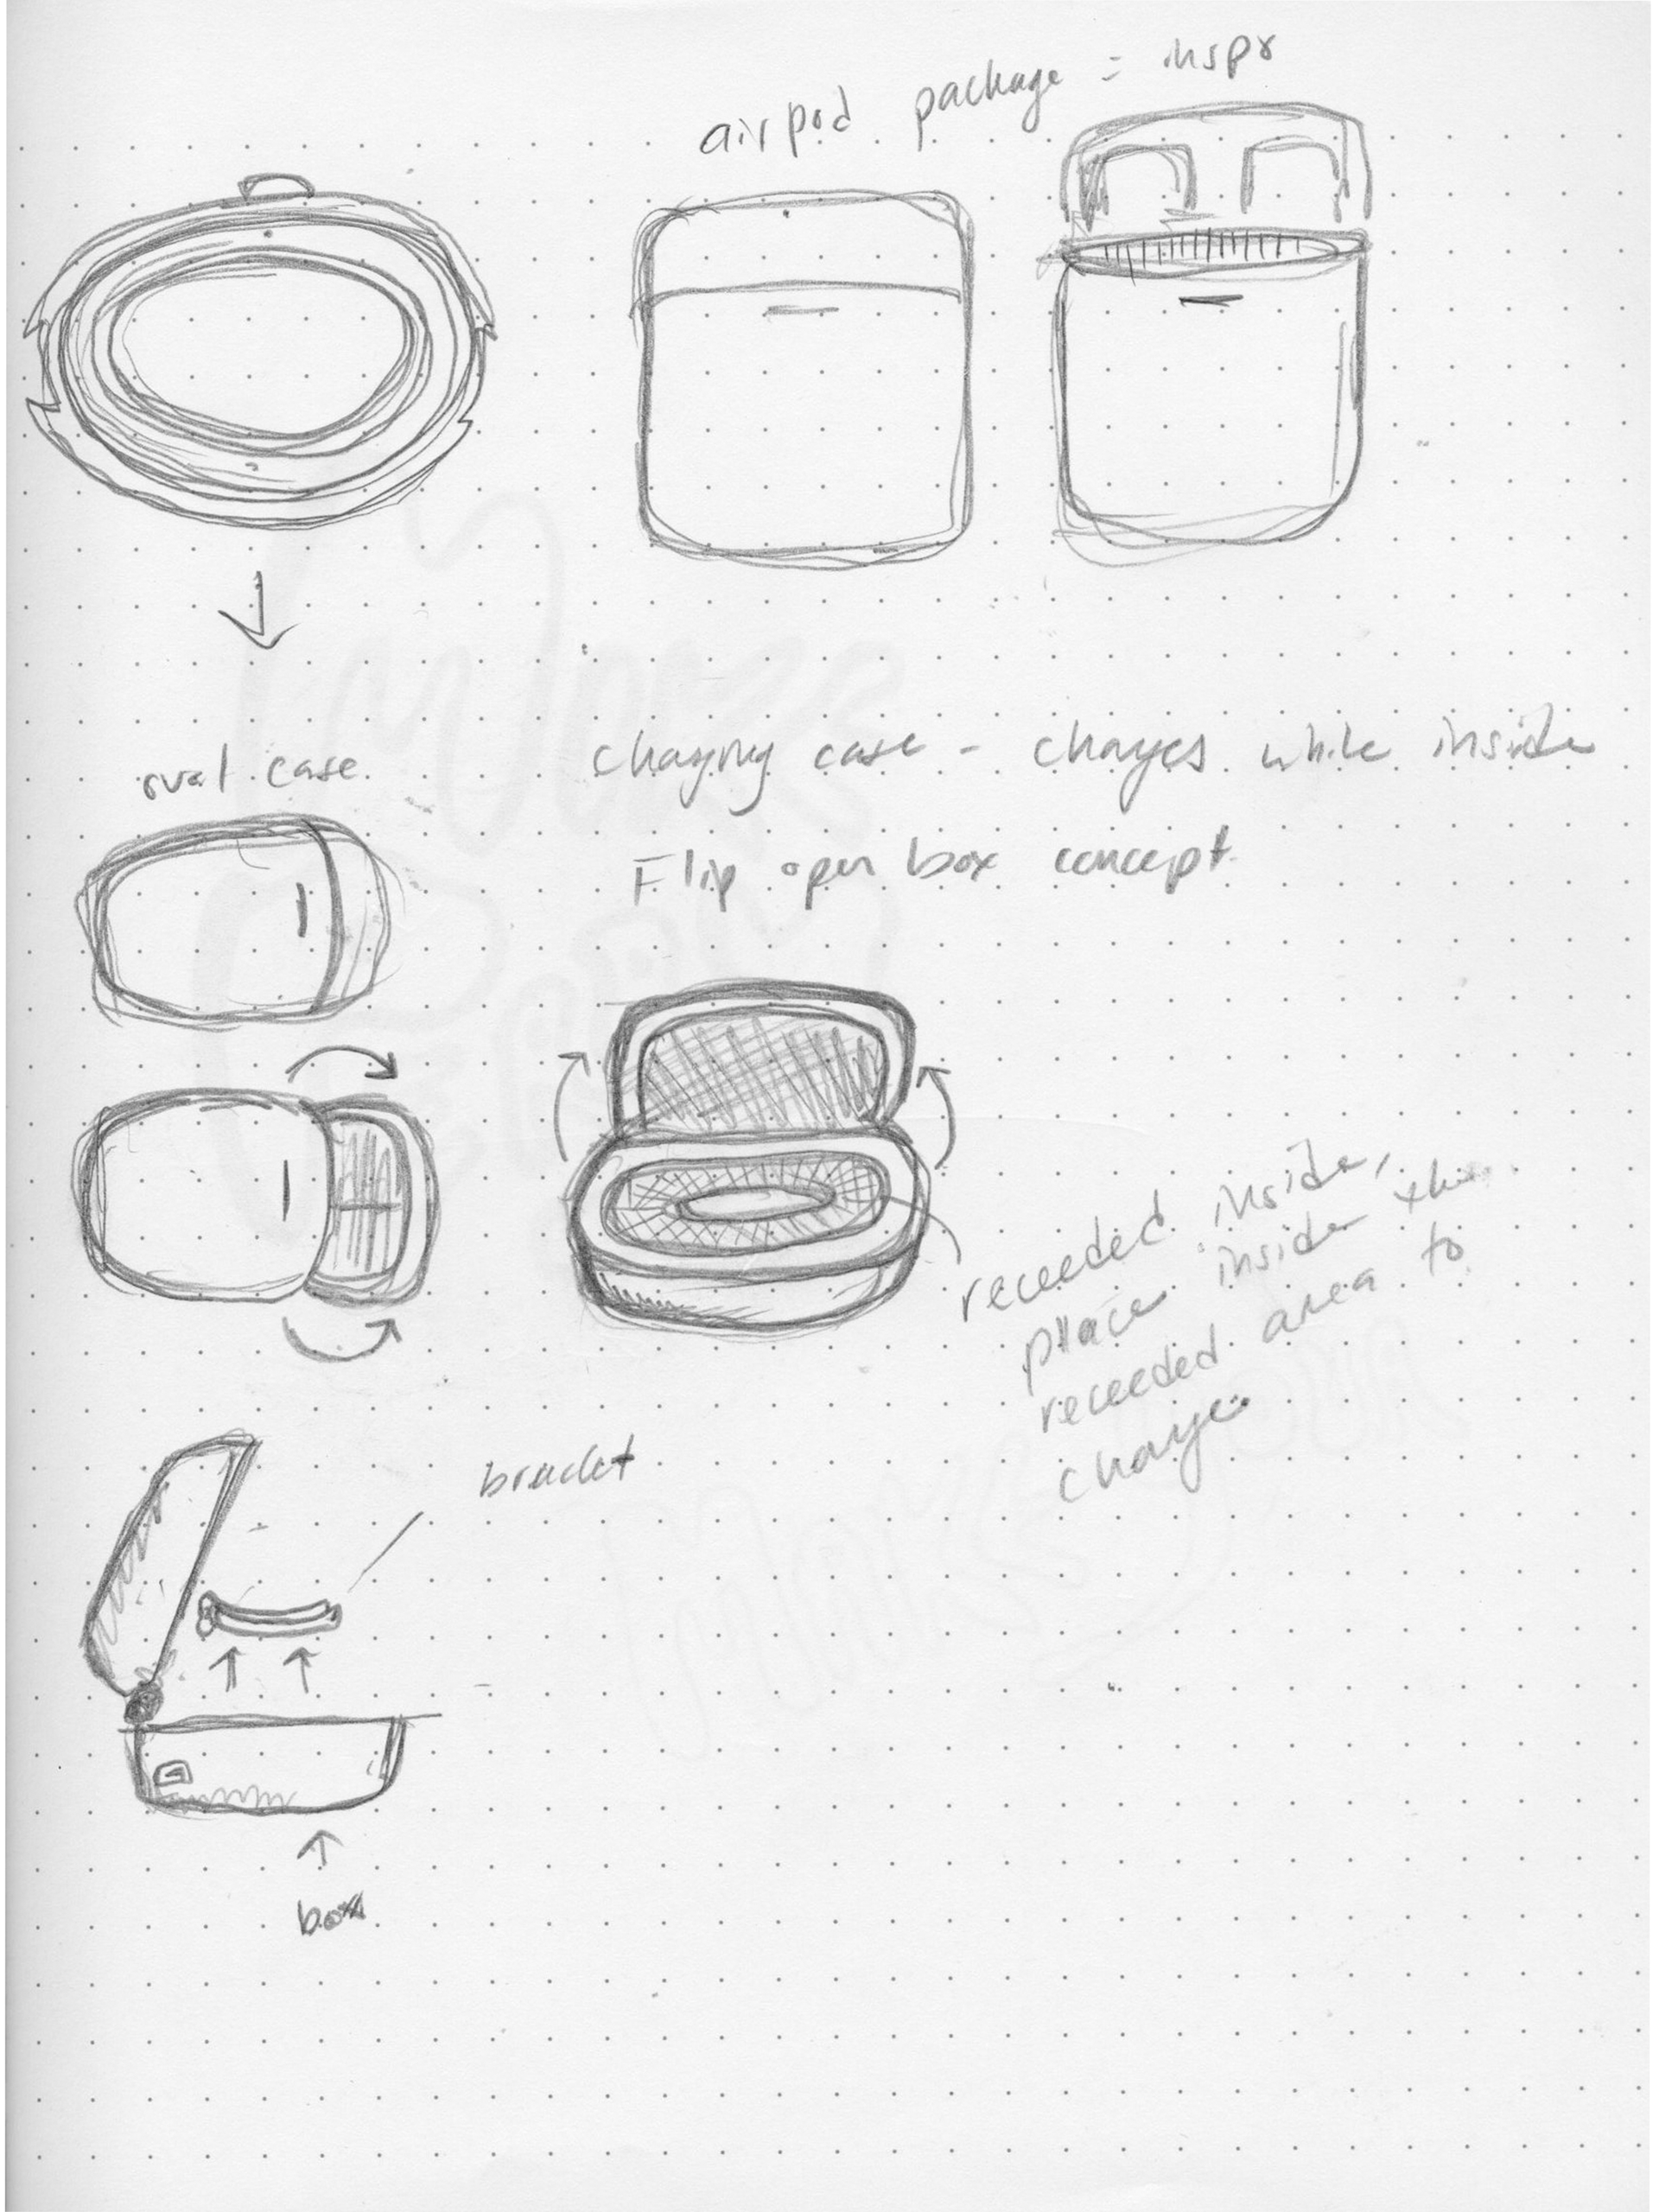 airpod package = inspr
oval case
charging case - charges while inside
Flip open box concept
receeded inside,
place inside the
receeded area to
charge
bracket
box